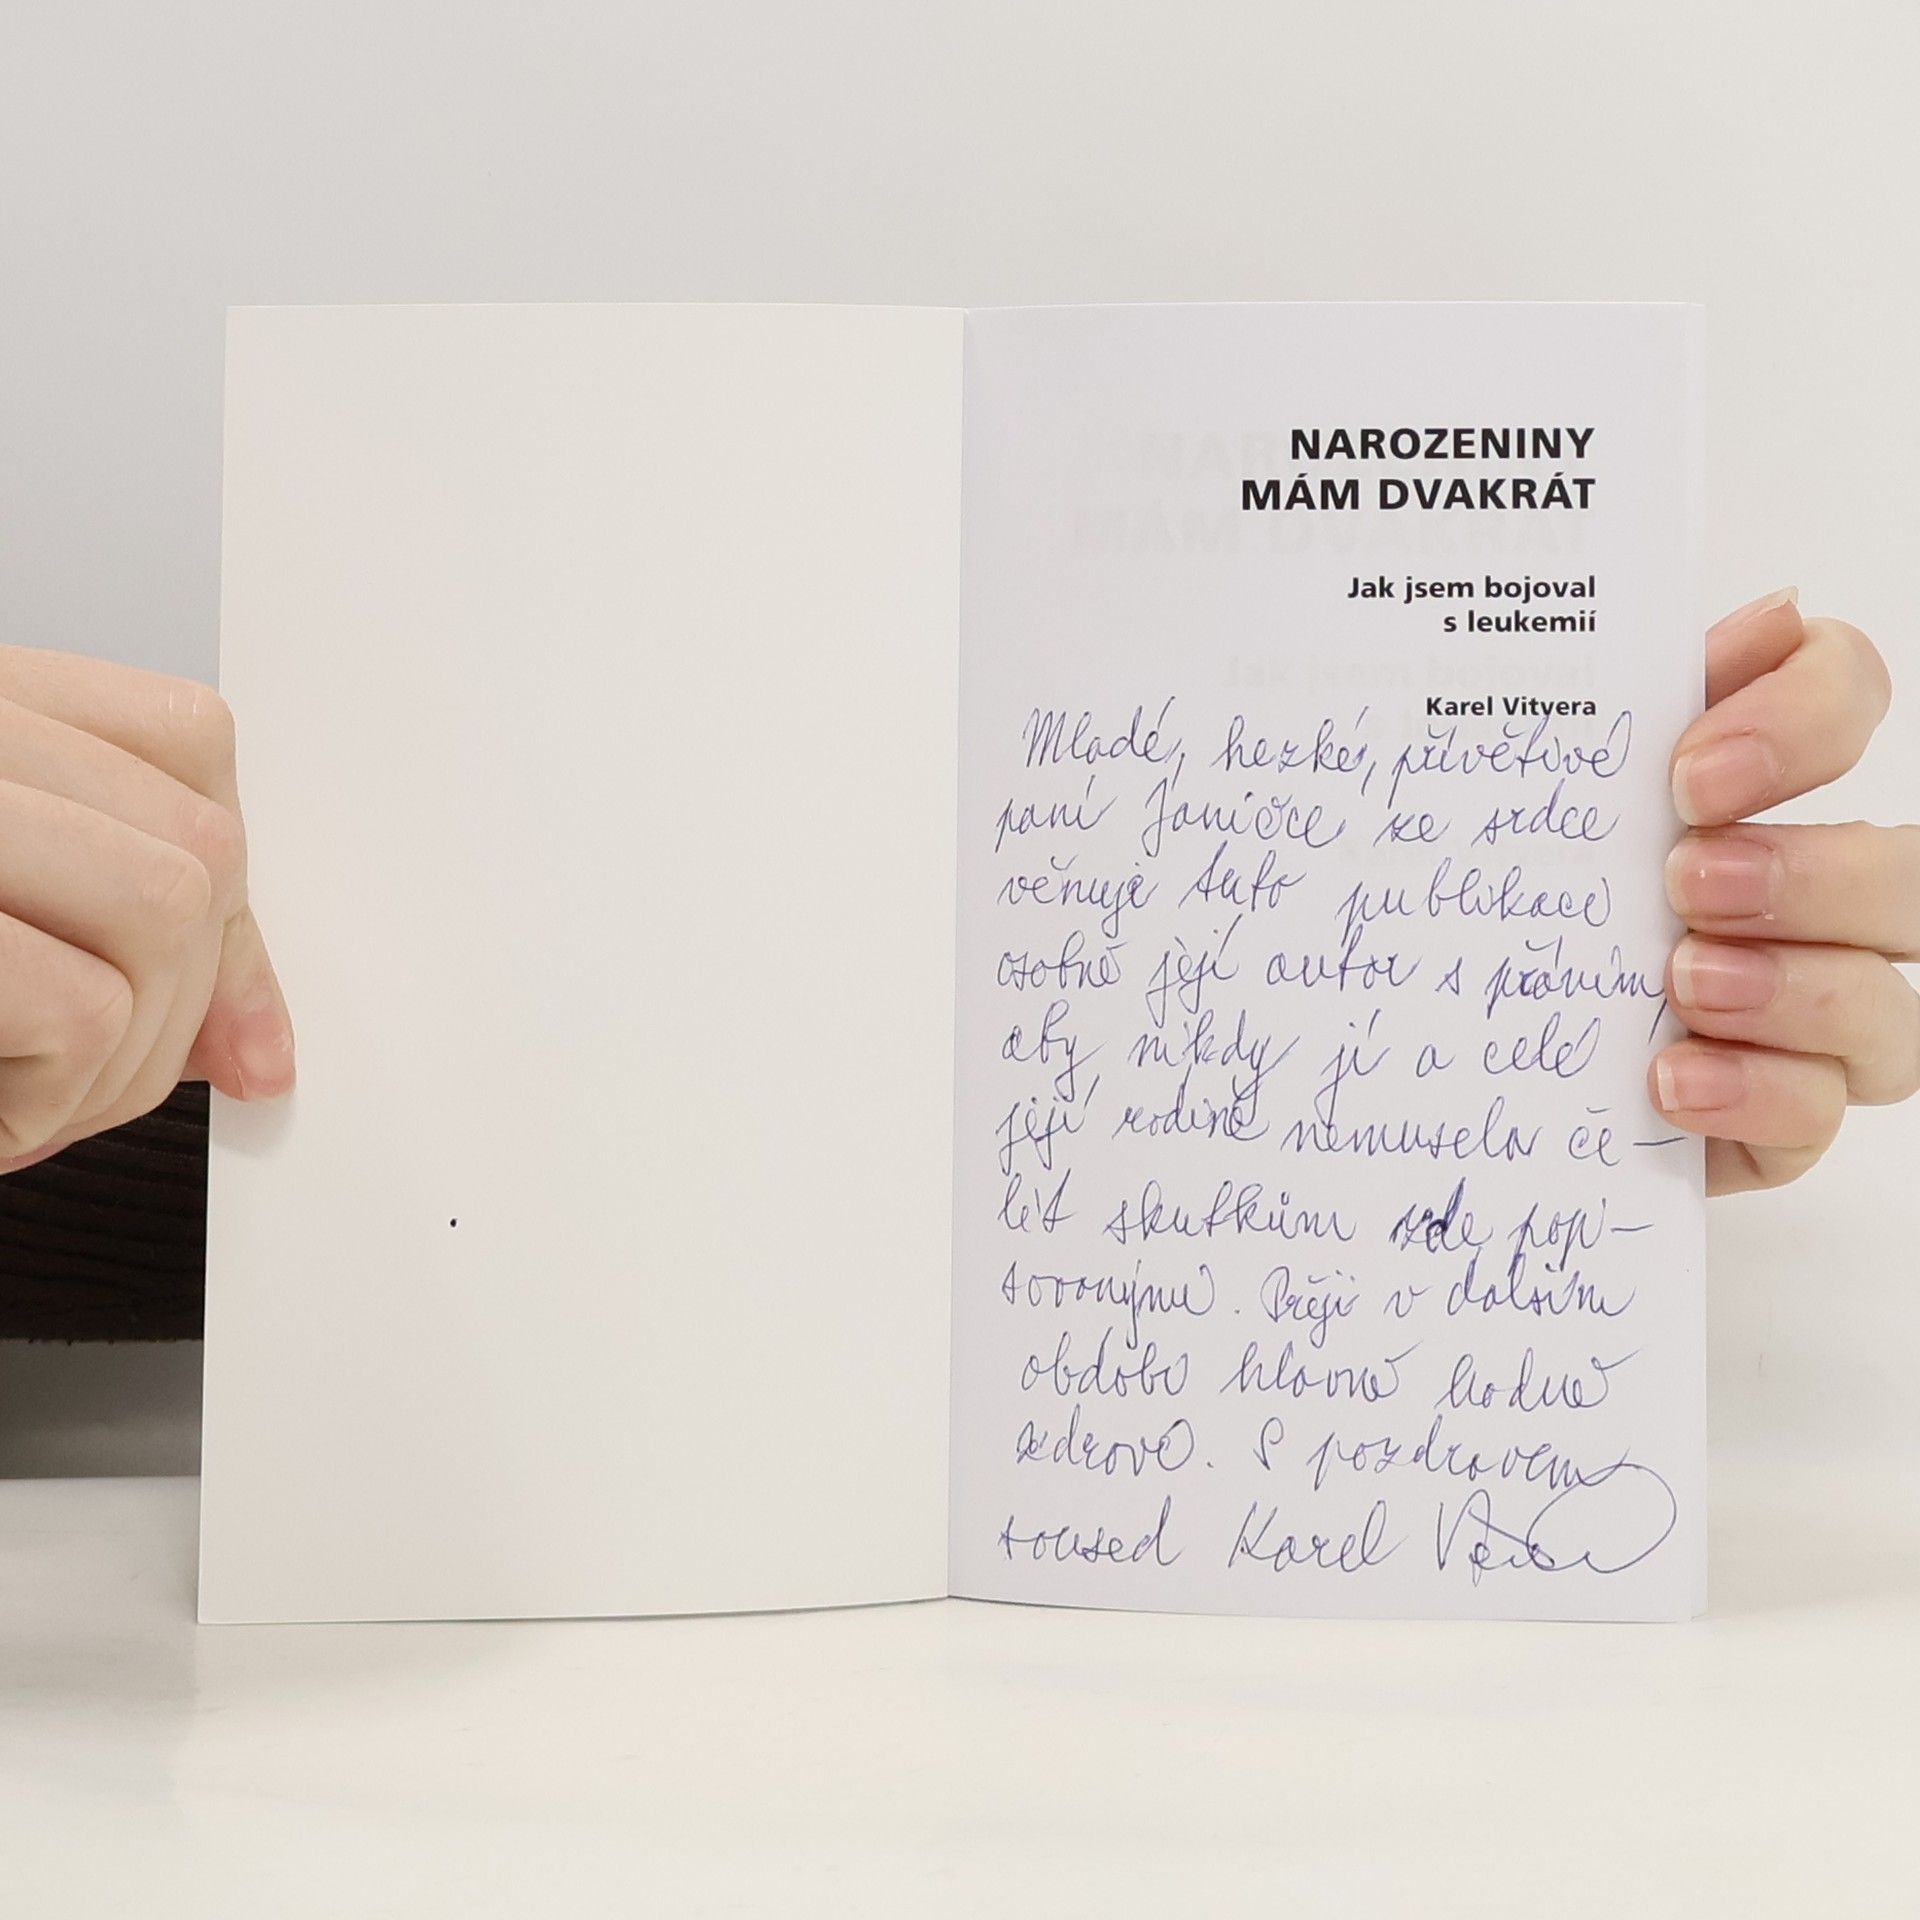 NAROZENINY
MÁM DVAKRÁT
Jak jsem bojoval
s leukemií
Karel Vitvera
Mladé, hezké, přívětivé
paní Janičce ze srdce
věnuje tuto publikaci
osobně její autor s přáním,
aby nikdy jí a celé
její rodině nemusela če-
lit skutkům zde popi-
sovaným. Přeji v dalším
období hlavně hodně
zdraví. S pozdravem
soused Karel